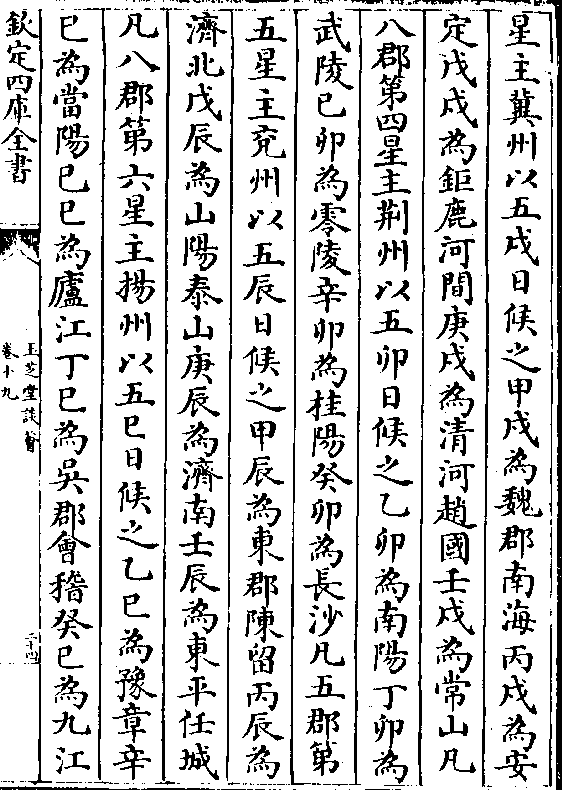 星主冀州以五戌日候之甲戌為魏郡南海丙戌為安
定戊戌為鉅鹿河間庚戌為清河趙國壬戌為常山凡
八郡第四星主荆州以五卯日候之乙卯為南陽丁卯為
武陵已卯為零陵辛卯為桂陽癸卯為長沙凡五郡第
五星主兖州以五辰日候之甲辰為東郡陳留丙辰為
濟北戊辰為山陽泰山庚辰為濟南壬辰為東平任城
凡八郡第六星主揚州以五巳日候之乙巳為豫章辛
巳為當陽巳巳為廬江丁巳為吳郡會稽癸巳為九江
欽定四庫全書
玉芝堂談薈
卷十九
二十四